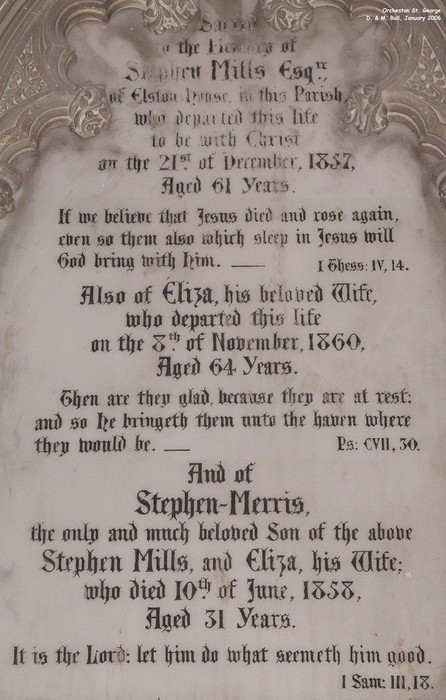 Orcheston St. George
D. & M. Ball, January 2006
Sacred
to the Memory of
Stephen Mills Esqre
of Elston House, in this Parish,
who departed this life
to be with Christ
on the 21st of December, 1857,
Aged 61 Years.
If we believe that Jesus died and rose again,
even so them also which sleep in Jesus will
God bring with Him. — I Thess: IV, 14.
Also of Eliza, his beloved Wife,
who departed this life
on the 8th of November, 1860,
Aged 64 Years.
Then are they glad, because they are at rest:
and so He bringeth them unto the haven where
they would be. — Ps: CVII, 30.
And of
Stephen-Merris,
the only and much beloved Son of the above
Stephen Mills, and Eliza, his Wife;
who died 10th of June, 1858,
Aged 31 Years.
It is the Lord: let him do what seemeth him good.
I Sam: III, 18.